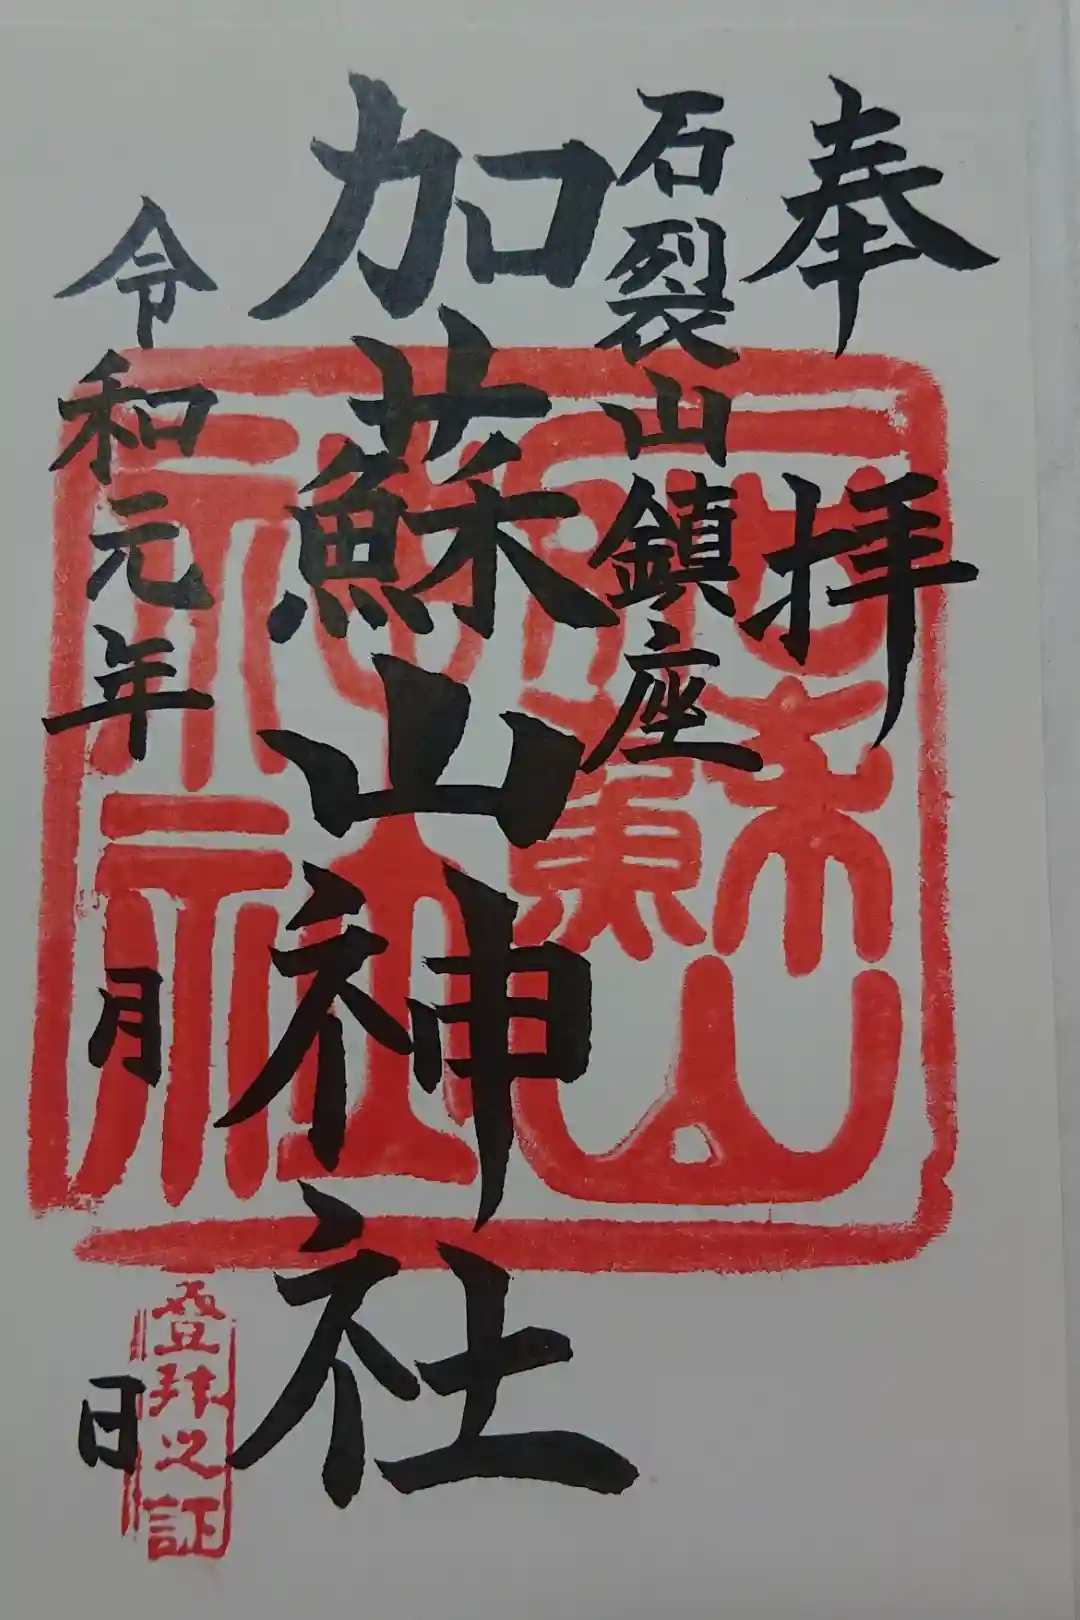 奉拝
石裂山鎮座
加蘇山神社
令和元年 月 日
登拝之証